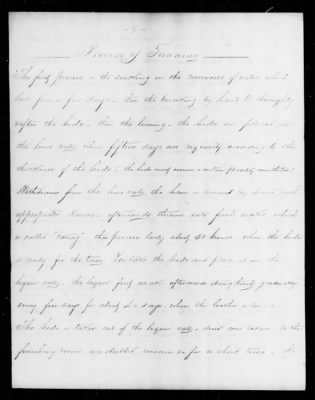 Process of Tanning
The first process is the soaking in the reservoirs of water which
last for a few days. then the breaking by hand to thoroughly
soften the hides. then the liming. the hides are placed in
the lime vats, when fifteen days are required, according to the
thickness of the hides
Withdrawn from the lime vats, the hair is removed by hand with
appropriate knives; afterwards thrown into fresh water which
is called this process lasts about 50 hours when the hide
is ready for the tan. You take the hides and place in the
liquor vats. the liquor first weak afterwards strengthened gradually
every few days for about days, when the leather is tanned
The hides is taken out of the liquor vats, and are taken to the
finishing room for a short time. the